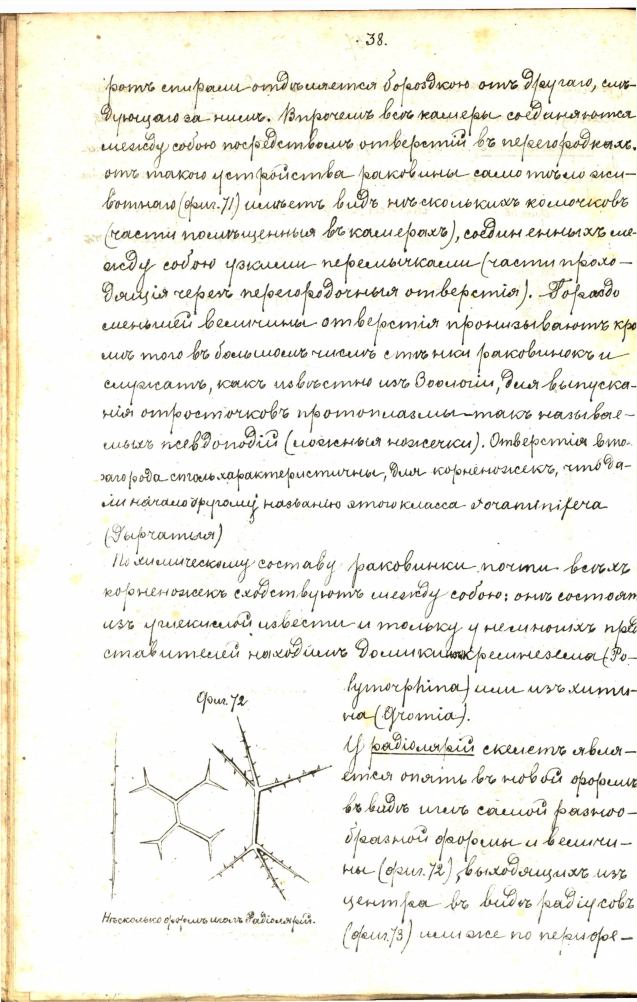 38.
ротъ спирали отдѣляется бороздкою отъ другаго, слѣ-
дующаго за нимъ. Впрочемъ всѣ камеры соединяются
между собою посредствомъ отверстій въ перегородкахъ.
отъ такого устройства раковины само тѣло жи-
вотнаго (фиг. 71) имѣетъ видъ нѣсколькихъ комочковъ
(части помѣщенныя въ камерахъ), соединенныхъ ме-
жду собою узкими перемычками (части прохо-
дящія черезъ перегородочныя отверстія). Гораздо
меньшей величины отверстія пронизываютъ кро
мѣ того въ большомъ числѣ стѣнки раковинокъ и
служатъ, какъ извѣстно изъ Зоологіи, для выпуска-
нія отросточковъ протоплазмы – такъ называе-
мыхъ псевдоподій (ложныя ножечки). Отверстія вто-
раго рода столь характеристичны, для корненожекъ, что да-
ли начало другому названію этого класса Foraminifera
(Дырчатыя)
По химическому составу раковинки почти всѣхъ
корненожекъ сходствуютъ между собою: онѣ состоят
изъ углекислой извести и тольку у немногихъ пред
ставителей находимъ домики изъ кремнезема (Po-
lymorphina) или изъ хити-
на (Gromia).
У радіолярій скелетъ явля-
ется опять въ новой формѣ
въ видѣ иглъ самой разноо-
бразной формы и величи-
ны (фиг. 72), выходящихъ изъ
центра въ видѣ радіусовъ
(фиг. 73) или же по перифе-
Фиг. 72
Нѣсколько формъ иголъ Радіолярій.